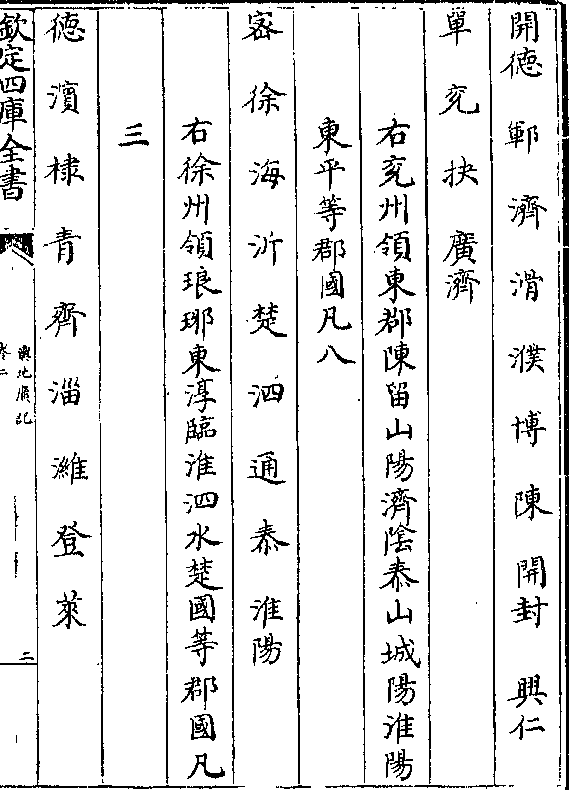 開德 鄆 濟 滑 濮 博 陳 開封 興仁
單 兖 抉 廣濟
右兖州領東郡陳留山陽濟陰泰山城陽淮陽
東平等郡國凡八
密 徐 海 沂 楚 泗 通 泰 淮陽
右徐州領琅琊東淳臨淮泗水楚國等郡國凡
三
德 濱 棣 青 齊 淄 濰 登 萊
欽定四庫全書
輿地廣記
卷二
二